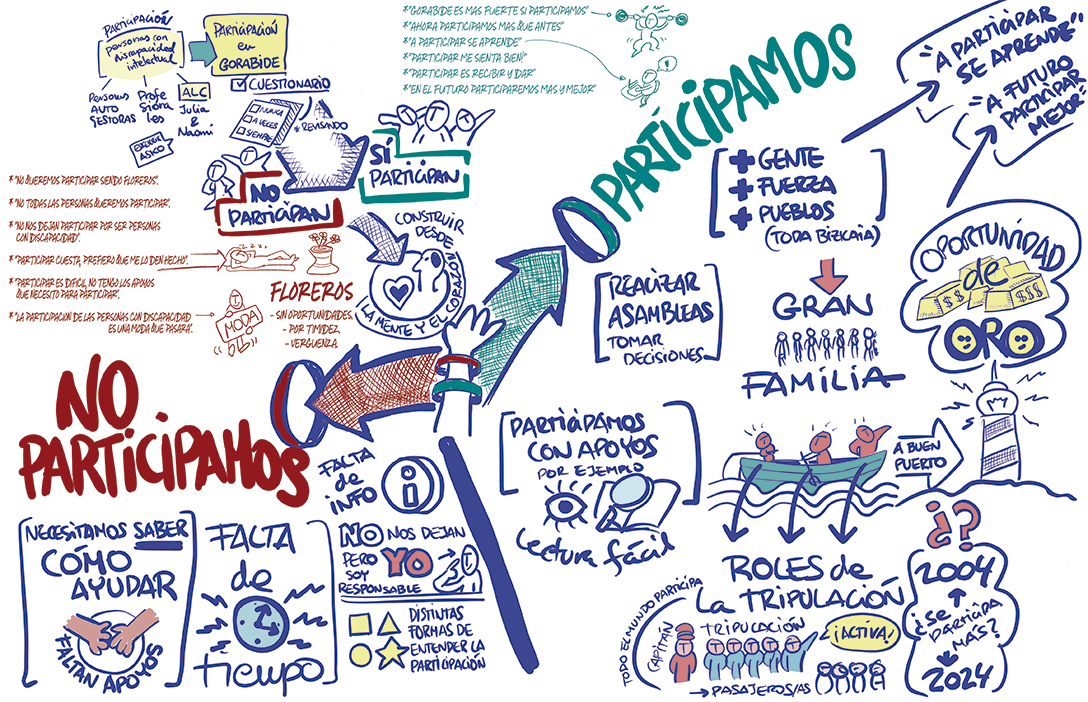 PARTICIPACIÓN
personas con
discapacidad
intelectual
PARTICIPACIÓN
en
GORABIDE
PERSONAS
AUTO
GESTORAS
PROFE
SIONA
LES
ALC
Julia
&
Naomi
CUESTIONARIO
NUNCA
A VECES
SIEMPRE
* REVISANDO
SÍ
PARTICIPAN
NO
PARTICIPAN
*"GORABIDE ES MAS FUERTE SI PARTICIPAMOS"
*"AHORA PARTICIPAMOS MAS QUE ANTES"
*"A PARTICIPAR SE APRENDE"
*"PARTICIPAR ME SIENTA BIEN!"
*"PARTICIPAR ES RECIBIR Y DAR"
*"EN EL FUTURO PARTICIPAREMOS MAS Y MEJOR"
*"NO QUEREMOS PARTICIPAR SIENDO FLOREROS".
*"NO TODAS LAS PERSONAS QUEREMOS PARTICIPAR".
*"NO NOS DEJAN PARTICIPAR POR SER PERSONAS
CON DISCAPACIDAD".
*"PARTICIPAR CUESTA, PREFIERO QUE ME LO DEN HECHO".
*"PARTICIPAR ES DIFICIL, NO TENGO LOS APOYOS
QUE NECESITO PARA PARTICIPAR".
*"LA PARTICIPACION DE LAS PERSONAS CON DISCAPACIDAD
ES UNA MODA QUE PASARA".
ZZZZ
MODA
FLOREROS
- SIN OPORTUNIDADES
- POR TIMIDEZ
- VERGUENZA
CONSTRUIR
DESDE
LA MENTE Y EL CORAZÓN
PARTICIPAMOS
NO
PARTICIPAMOS
NECESITAMOS SABER
CÓMO
AYUDAR
FALTAN APOYOS
FALTA
de
tiempo
FALTA
de
INFO
i
NO NOS DEJAN
PERO YO
SOY
RESPONSABLE
DISTINTAS
FORMAS DE
ENTENDER LA
PARTICIPACIÓN
REALIZAR
ASAMBLEAS
TOMAR
DECISIONES
PARTICIPAMOS
CON APOYOS
POR EJEMPLO
Lectura fácil
+ GENTE
+ FUERZA
+ PUEBLOS
(TODA BIZKAIA)
GRAN
FAMILIA
"A PARTICIPAR
SE APRENDE"
"A FUTURO
PARTICIPAR
MEJOR"
OPORTUNIDAD
de
$$
$$$
ORO
A BUEN
PUERTO
ROLES de
La TRIPULACIÓN
TODO EL MUNDO PARTICIPA
CAPITÁN
TRIPULACIÓN
¡ACTIVA!
→ PASAJEROS/AS
¿?
2004
¿SE
PARTICIPA
MÁS?
2024